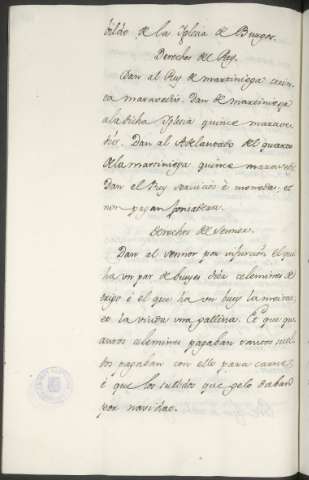 bildo de la Iglesia de Burgos.
Derechos del Rey.
Dan al Rey de martiniega trein-
ta maravedis. Dan de martiniega
a la dicha Iglesia quince marave-
dis. Dan al Adelantado del quarto
de la martiniega quince maravedis
Dan el Rey servicios è monedas, et
non pagan fonsadera.
Derechos del Sennor.
Dan al sennor por infurción el que
ha un par de bueyes diez celemines de
trigo è el que ha un buey la meitad,
et la viuda una gallina. Et que qu
antos celemines pagaban tantos suel-
dos pagaban con ello para carne,
è que los sueldos que gelo daban
por navidat.